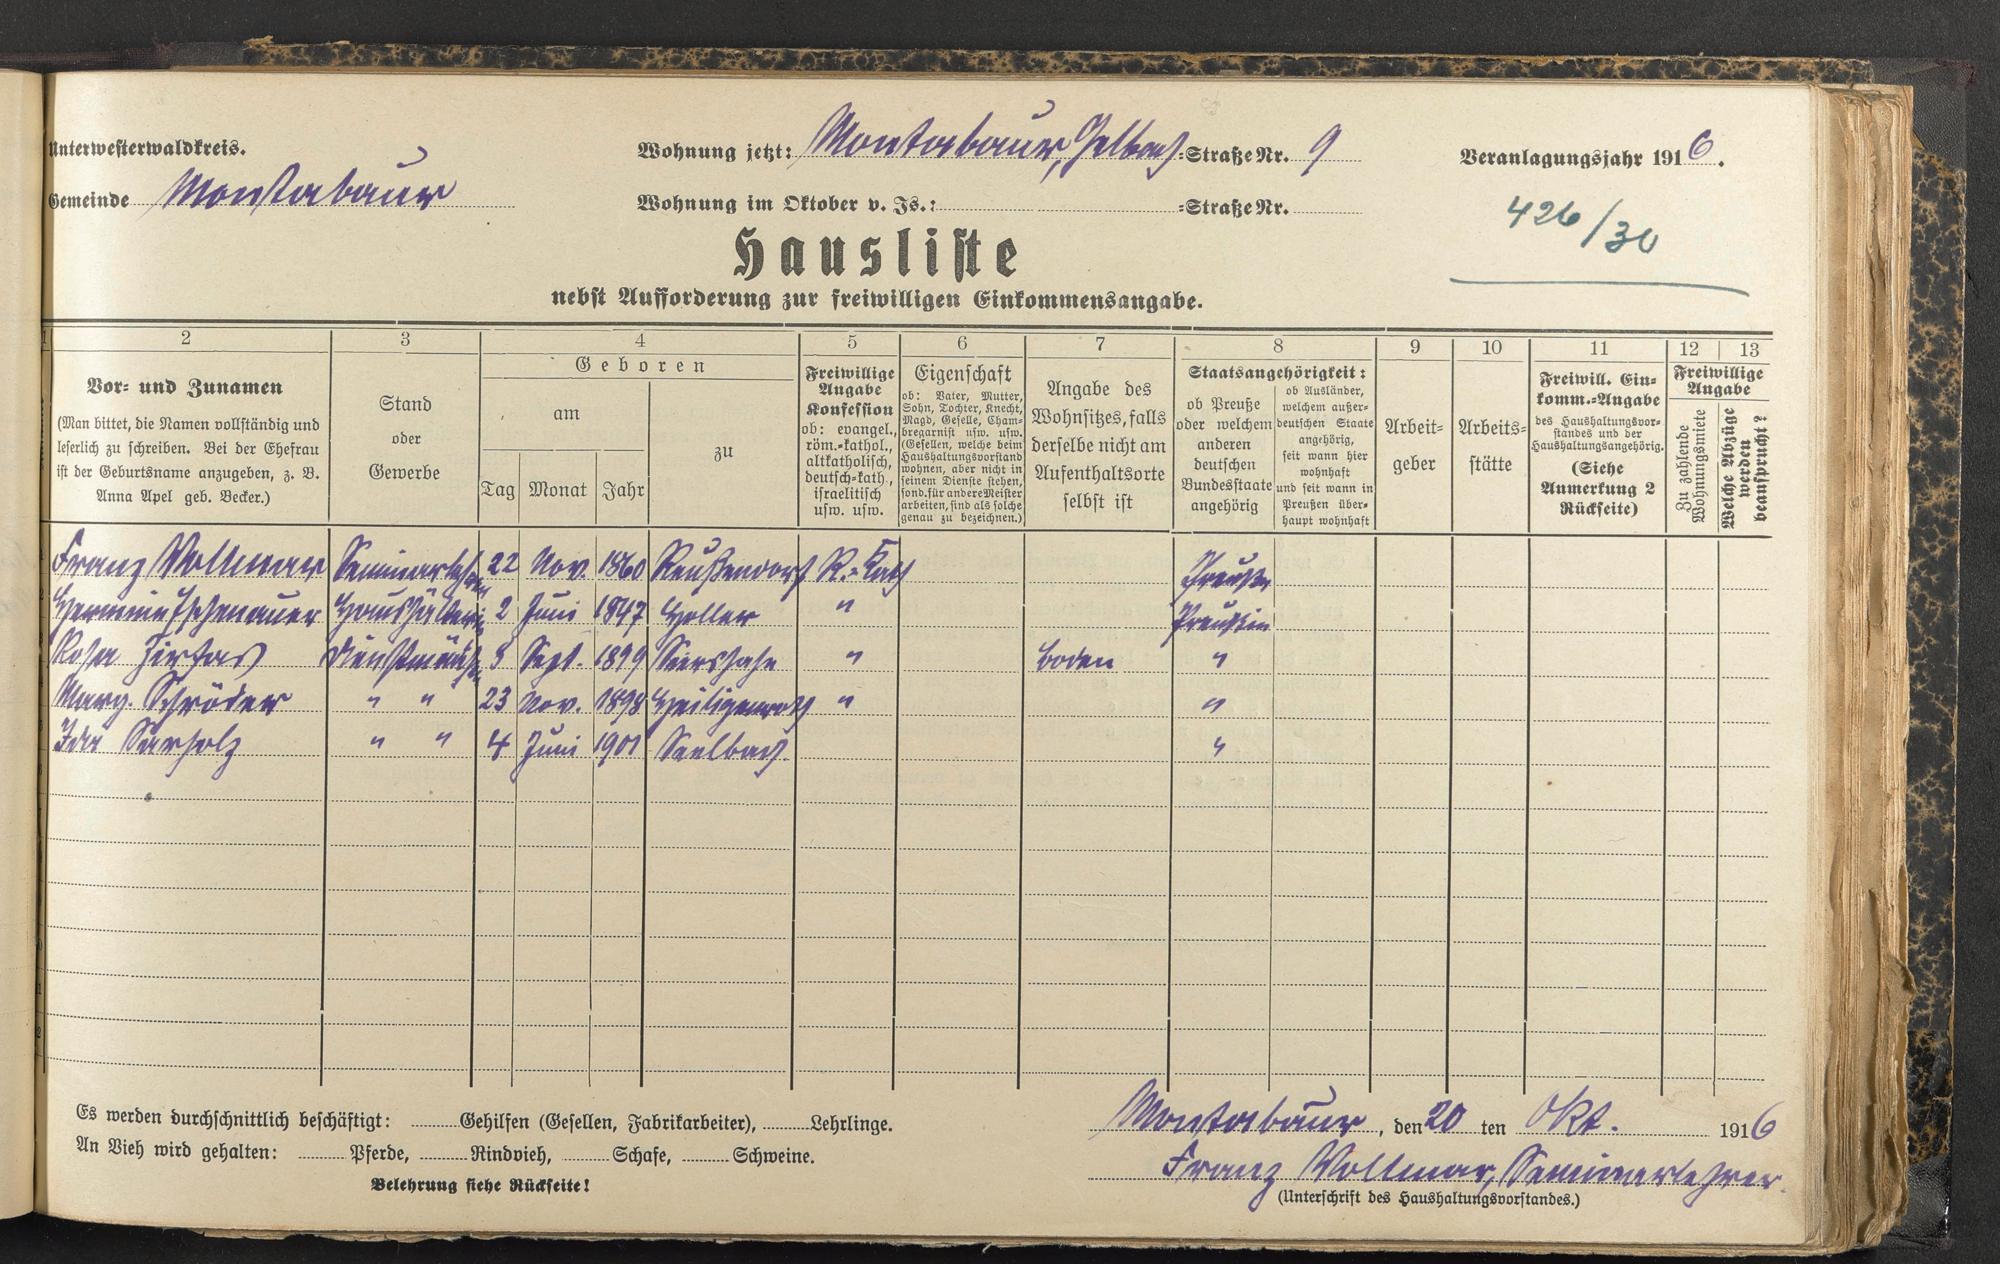 Unterwesterwaldkreis.
Gemeinde Montabaur
Wohnung jetzt: Montabaur, Gelbach=Straße Nr. 9
Wohnung im Oktober v. Js.: =Straße Nr.
Veranlagungsjahr 1916.
426/30
Hausliste
nebst Aufforderung zur freiwilligen Einkommensangabe.
1 2 3 4 5 6 7 8 9 10 11 12 13
Vor= und Zunamen
(Man bittet, die Namen vollständig und
leserlich zu schreiben. Bei der Ehefrau
ist der Geburtsname anzugeben, z. B.
Anna Apel geb. Becker.)
Stand
oder
Gewerbe
Geboren
am
Tag Monat Jahr
zu
Freiwillige
Angabe
Konfession
ob: evangel.,
röm.=kathol.,
altkatholisch,
deutsch=kath.,
israelitisch
usw. usw.
Eigenschaft
ob: Vater, Mutter,
Sohn, Tochter, Knecht,
Magd, Geselle, Cham=
bregarnist usw. usw.
(Gesellen, welche beim
Haushaltungsvorstand
wohnen, aber nicht in
seinem Dienste stehen,
sond. für andere Meister
arbeiten, sind als solche
genau zu bezeichnen.)
Angabe des
Wohnsitzes, falls
derselbe nicht am
Aufenthaltsorte
selbst ist
Staatsangehörigkeit:
ob Preuße
oder welchem
anderen
deutschen
Bundesstaate
angehörig
ob Ausländer,
welchem außer=
deutschen Staate
angehörig,
seit wann hier
wohnhaft
und seit wann in
Preußen über=
haupt wohnhaft
Arbeit=
geber
Arbeits=
stätte
Freiwill. Ein=
komm.=Angabe
des Haushaltungsvor=
standes und der
Haushaltungsangehörig.
(Siehe
Anmerkung 2
Rückseite)
Freiwillige
Angabe
Zu zahlende
Wohnungsmiete
Welche Abzüge
werden
beansprucht?
Franz Vollmar Seminarlehrer 22 Nov. 1860 Reußendorf R.=Kath Preuße
Hermine Eschenauer Haushälterin 2 Juni 1847 Holler " Preußin
Rosa Zirfas Dienstmädch. Sept. 1899 Siershahn " Boden "
Marg. Schröder " " 23 Nov. 1898 Heiligenroth " "
Ida " " 4 Juni 1901 Seelbach. "
Es werden durchschnittlich beschäftigt: Gehilfen (Gesellen, Fabrikarbeiter), Lehrlinge.
An Vieh wird gehalten: Pferde, Rindvieh, Schafe, Schweine.
Belehrung siehe Rückseite!
Montabaur, den 20 ten Okt. 1916
Franz Vollmar, Seminarlehrer.
(Unterschrift des Haushaltungsvorstandes.)